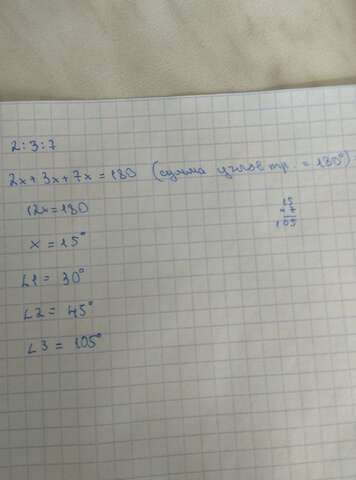 2:3:7
2x+3x+7x=180 (сумма углов тр. = 180°)
12x=180
x = 15°
∠1 = 30°
∠2 = 45°
∠3 = 105°
15
× 7
105